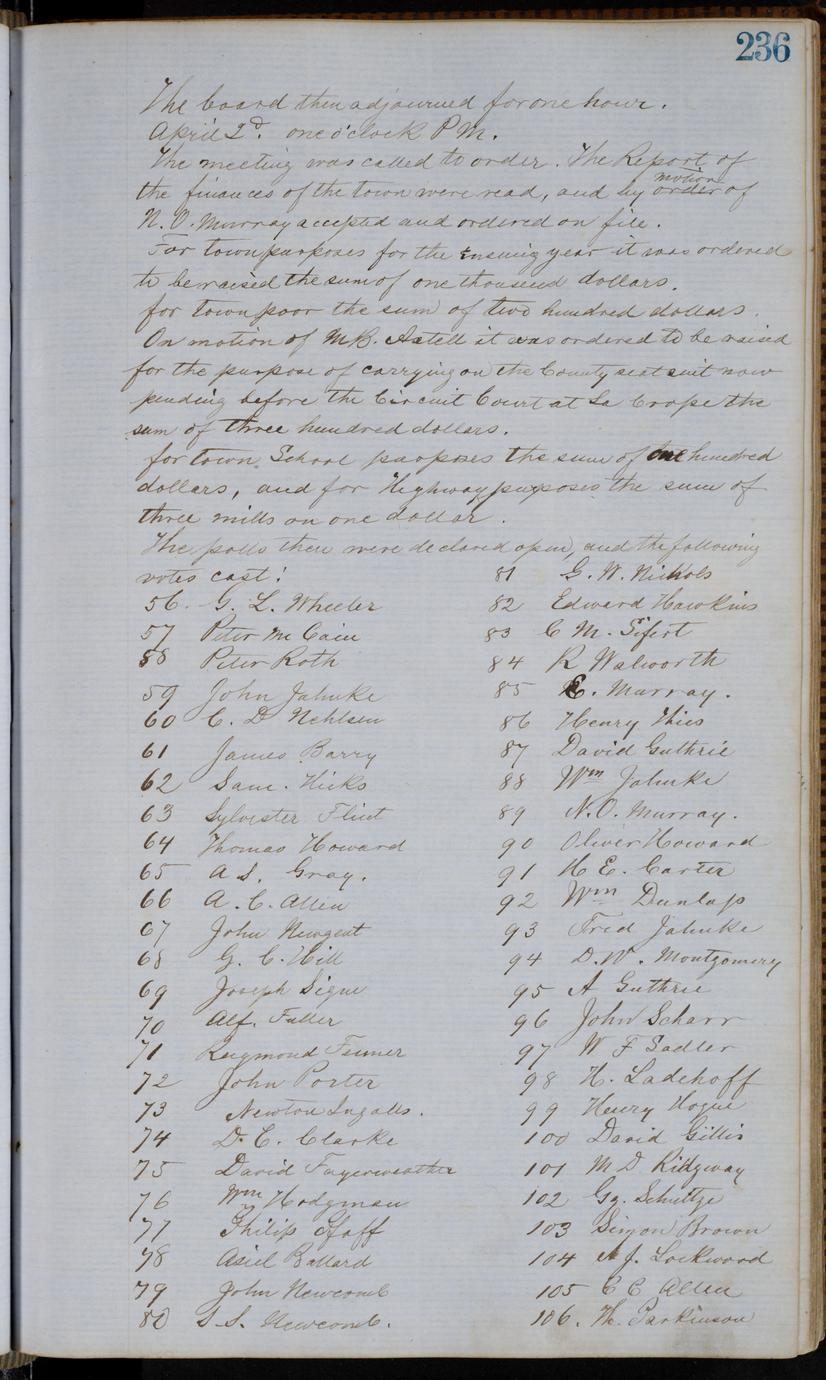 236
The board then adjourned for one hour.
April 2d. one o'clock P M.
The meeting was called to order. The Report of
the finances of the town were read, and by order of
motion
N. O. Murray accepted and ordered on file.
For town purposes for the ensuing year it was ordered
to be raised the sum of one thousand dollars.
for town poor the sum of two hundred dollars.
On motion of M B. Axtell it was ordered to be raised
for the purpose of carrying on the County seat suit now
pending before the Circuit Court at La Crosse the
sum of three hundred dollars.
for town School purposes the sum of one hundred
dollars, and for Highway purposes the sum of
three mills on one dollar.
The polls then were declared open, and the following
votes cast:
56. G. L. Wheeler
57 Peter McCain
58 Peter Roth
59 John Jahnke
60 C. D Nehlsen
61 James Barry
62 Sam. Hicks
63 Sylvester Flint
64 Thomas Howard
65 A S. Gray.
66 A. C. Allen
67 John Newgent
68 G. C. Hill
69 Joseph
70 Alf. Fuller
71 Raymond
72 John Porter
73 Newton Ingalls.
74 D. C. Clarke
75 David Fayerweather
76 Wm Hodgman
77 Philip Pfaff
78 Asiel Ballard
79 John Newcomb
80 S. S. Newcomb.
81 G. W. Nichols
82 Edward Hawkins
83 C M. Sifert
84 R Walworth
85 E. Murray.
86 Henry Thies
87 David Guthrie
88 Wm Jahnke
89 N. O. Murray.
90 Oliver Howard
91 H E. Carter
92 Wm Dunlap
93 Fred Jahnke
94 D. W. Montgomery
95 A Guthrie
96 John Scharr
97 W F Sadler
98 H. Ladehoff
99 Henry Hogue
100 David Gillis
101 M D Ridgway
102 Gg. Schultze
103 Simon Brown
104 A J. Lockwood
105 C C Allen
106. Th. Parkinson